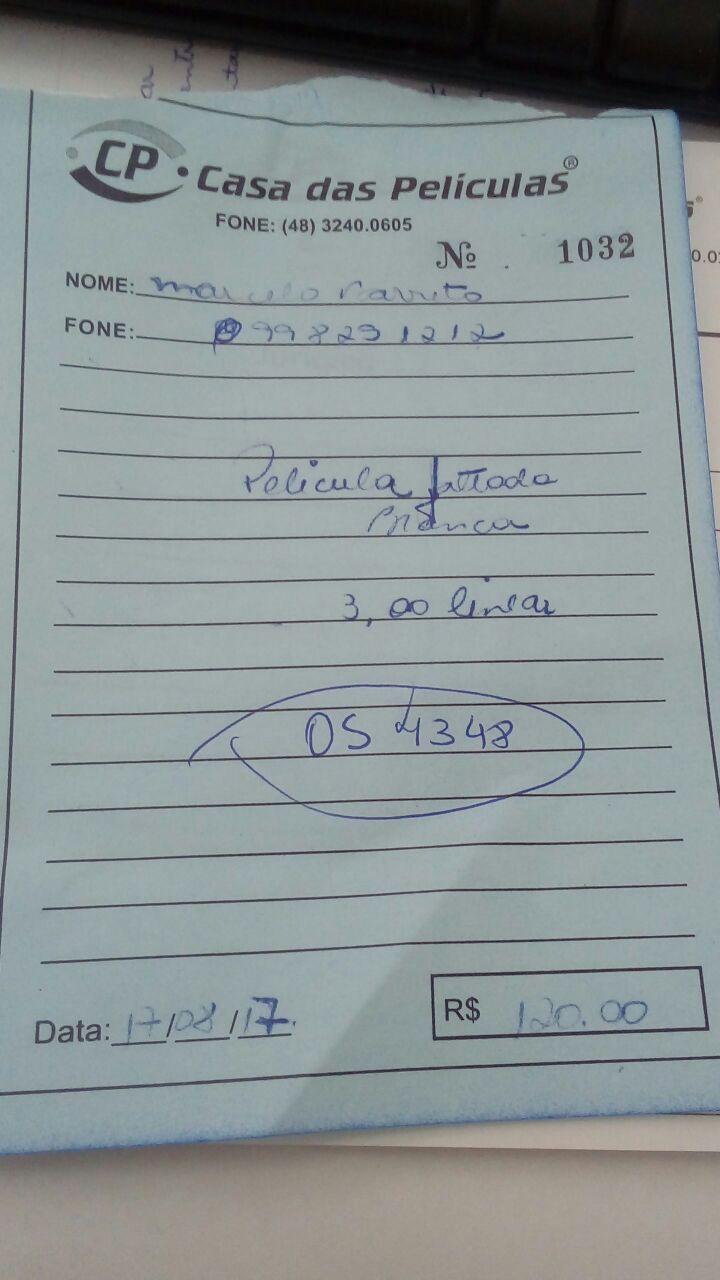 CP • Casa das Películas®
FONE: (48) 3240.0605
Nº . 1032
NOME: marcelo
FONE: 998291212
Pelicula Jattoda
Branca
3,00 linear
OS 4348
Data: 17/08/17.
R$ 120.00